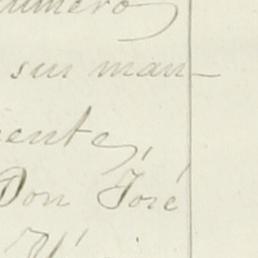 numero
sin man-
ente,
Don José